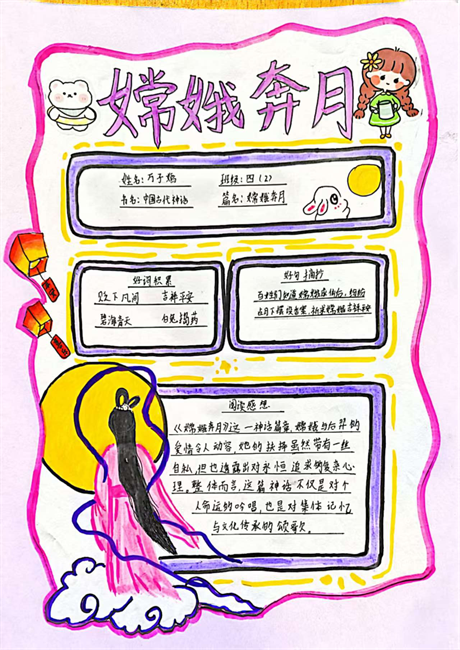 嫦娥奔月
姓名:万子鸡 班级:四(2)
书名:中国古代神话 篇名:嫦娥奔月
好词积累
贬下凡间 吉祥平安
碧海青天 白兔捣药
好句摘抄
百姓们知道嫦娥成仙后,纷纷
在月下摆设香案,祈求嫦娥吉祥
阅读感想
《嫦娥奔月》这一神话篇章,嫦娥与后羿的
爱情令人动容,她的抉择虽然带有一丝
自私,但也透露出对永恒追求的复杂心
理。整体而言,这篇神话不仅是对个
人命运的吟唱,也是对集体记忆
与文化传承的颂歌。